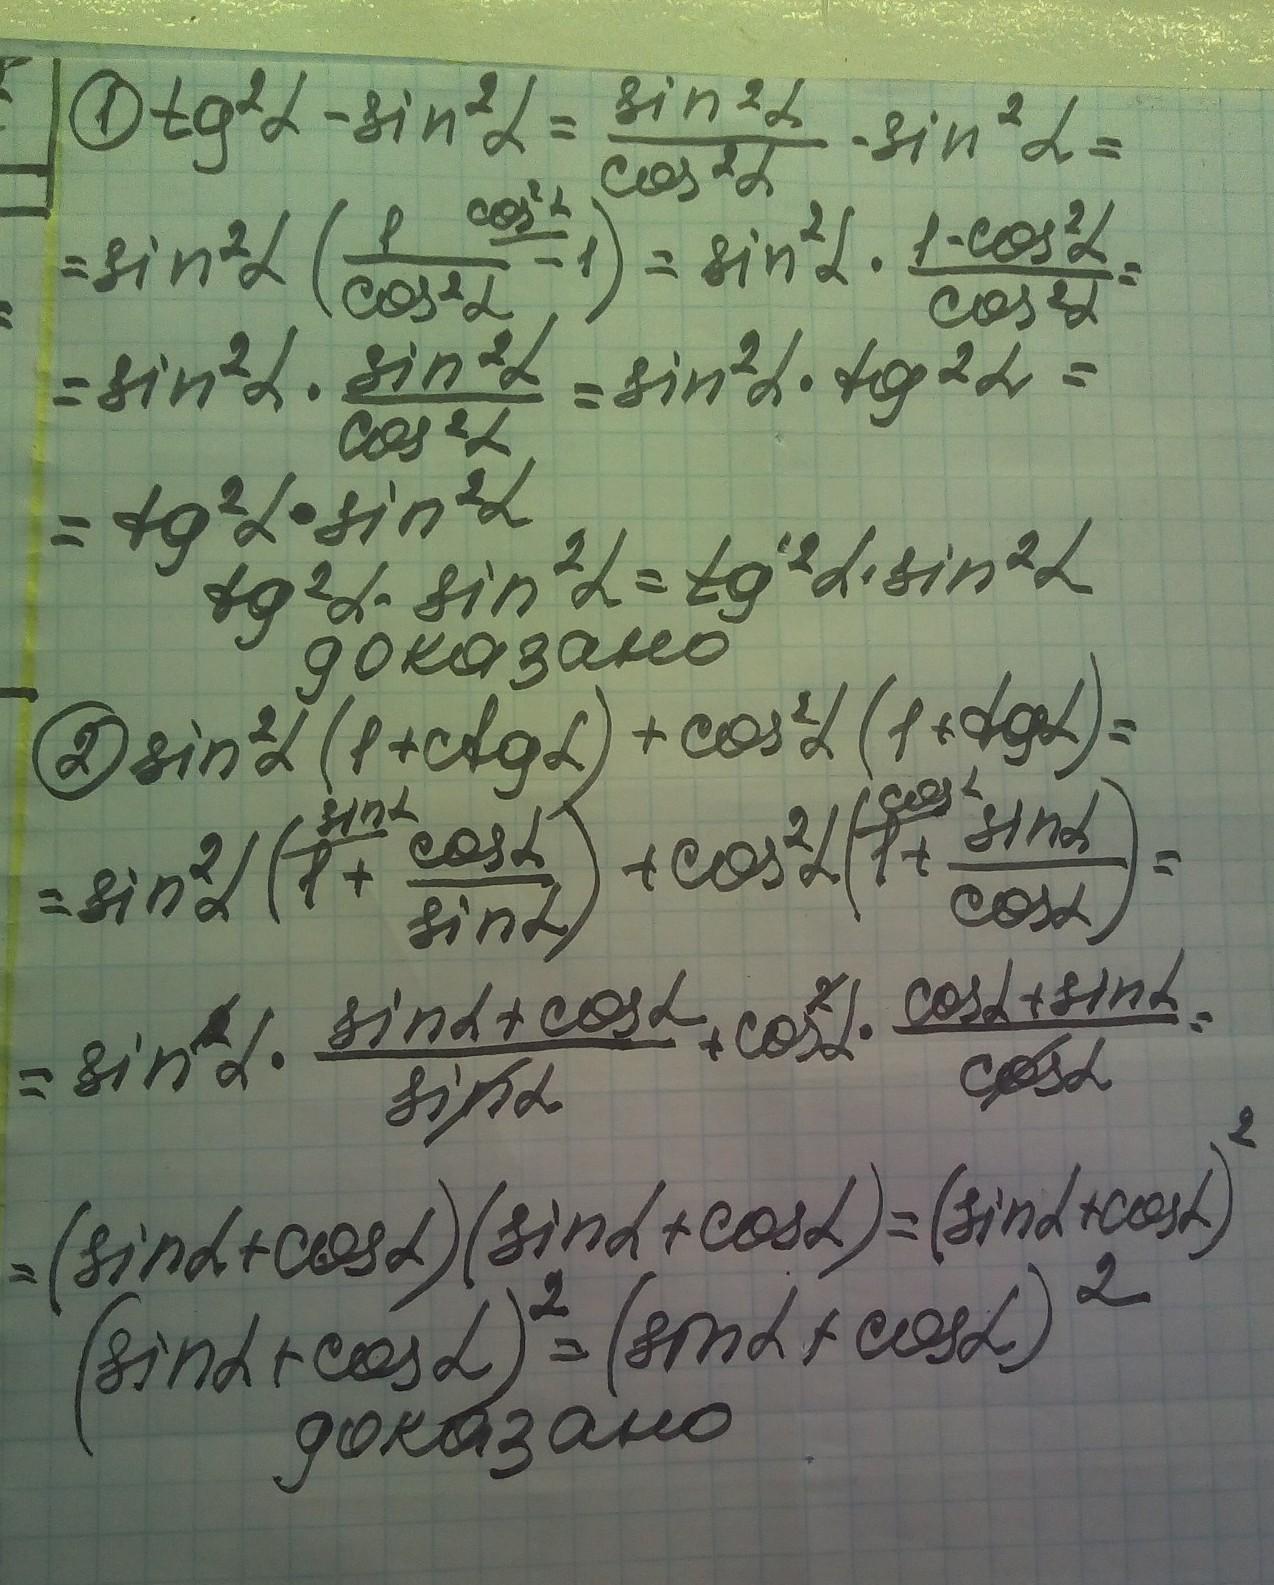 ① tg²α - sin²α = sin²α/cos²α - sin²α =
= sin²α (1/cos²α - 1 cos²α) = sin²α · (1-cos²α)/cos²α =
= sin²α · sin²α/cos²α = sin²α · tg²α =
= tg²α · sin²α
tg²α · sin²α = tg²α · sin²α
доказано
② sin²α (1 + ctgα) + cos²α (1 + tgα) =
= sin²α (1 sinα + cosα/sinα) + cos²α (1 cosα + sinα/cosα) =
= sin²α · (sinα + cosα)/sinα + cos²α · (cosα + sinα)/cosα =
= (sinα + cosα)(sinα + cosα) = (sinα + cosα)²
(sinα + cosα)² = (sinα + cosα)²
доказано